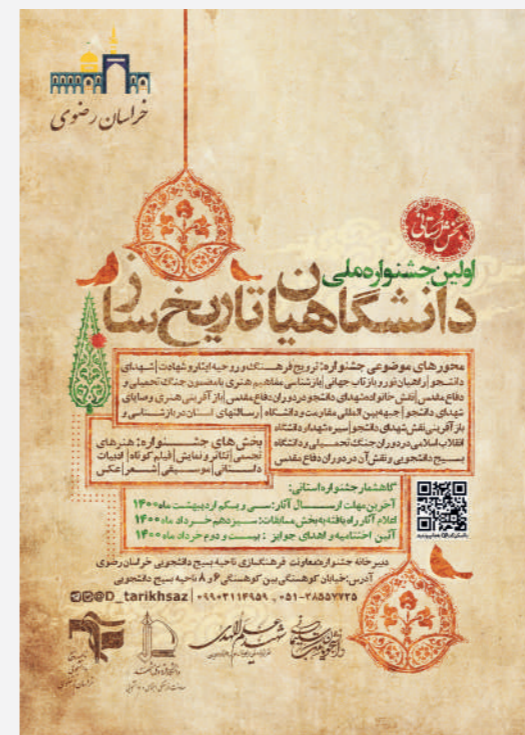 خراسان رضوی
بخش استانی
اولین جشنواره ملی
دانشگاهیان تاریخ ساز
محورهای موضوعی جشنواره: ترویج فرهنگ و روحیه ایثار و شهادت | شهدای
دانشجو | راهیان نور و بازتاب جهانی | بازشناسی مفاهیم هنری با مضمون جنگ تحمیلی و
دفاع مقدس | نقش خانواده شهدای دانشجو در دوران دفاع مقدس | بازآفرینی هنری وصایای
شهدای دانشجو | جبهه بین المللی مقاومت و دانشگاه | رسالتهای اساتید در بازشناسی و
بازآفرینی نقش شهدای دانشجو | سیره شهدا در دانشگاه
انقلاب اسلامی در دوران جنگ تحمیلی و دانشگاه
بسیج دانشجویی و نقش آن در دوران دفاع مقدس
بخش های جشنواره: هنرهای
تجسمی | تئاتر و نمایش | فیلم کوتاه | ادبیات
داستانی | موسیقی | شعر | عکس
گاهشمار جشنواره استانی:
آخرین مهلت ارسال آثار: سی و یکم اردیبهشت ماه ۱۴۰۰
اعلام آثار راه یافته به بخش مسابقات: سیزدهم خرداد ماه ۱۴۰۰
آئین اختتامیه و اهدای جوایز: بیست و دوم خرداد ماه ۱۴۰۰
دبیرخانه جشنواره: معاونت فرهنگسازی ناحیه بسیج دانشجویی خراسان رضوی
آدرس: خیابان کوهسنگی بین کوهسنگی ۶ و ۸ ناحیه بسیج دانشجویی
@D_tarikhsaz | ۰۹۹۰۳۱۱۴۹۵۹ , ۰۵۱-۳۸۵۵۷۷۳۵